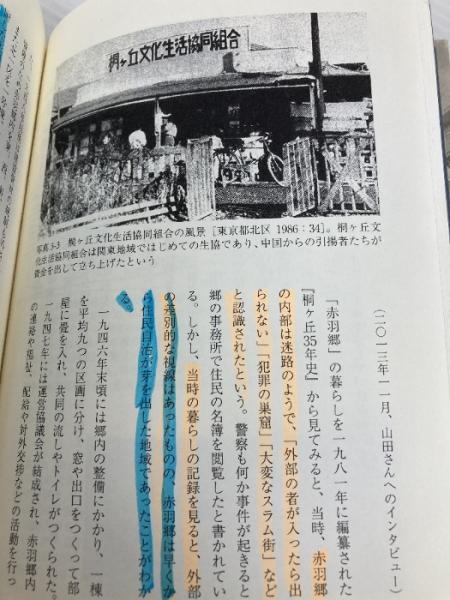 桐ヶ丘文化生活協同組合
写真3-3 桐ヶ丘文化生活協同組合の風景［東京都北区 1986：34］。桐ヶ丘文
化生活協同組合は関東地域ではじめての生協であり、中国からの引揚者たちが
資金を出して立ち上げたという
（二〇一三年一一月、山田さんへのインタビュー）
「赤羽郷」の暮らしを一九八一年に編纂された
『桐ヶ丘35年史』から見てみると、当時、赤羽郷
の内部は迷路のようで、「外部の者が入ったら出
られない」「犯罪の巣窟」「大変なスラム街」など
と認識されたという。警察も何か事件が起きると
郷の事務所で住民の名簿を閲覧したと書かれてい
る。しかし、当時の暮らしの記録を見ると、外部
の差別的な視線はあったものの、赤羽郷は早くか
ら住民自治が芽を出した地域であったことがわか
る。
一九四六年末頃には郷内の整備にかかり、一棟
を平均九つの区画に分け、窓や出口をつくって部
屋に畳を入れ、共同の流しやトイレがつくられた。
一九四七年には運営協議会が結成され、赤羽郷内
の連絡や福祉、配給や対外交渉などの活動を行っ